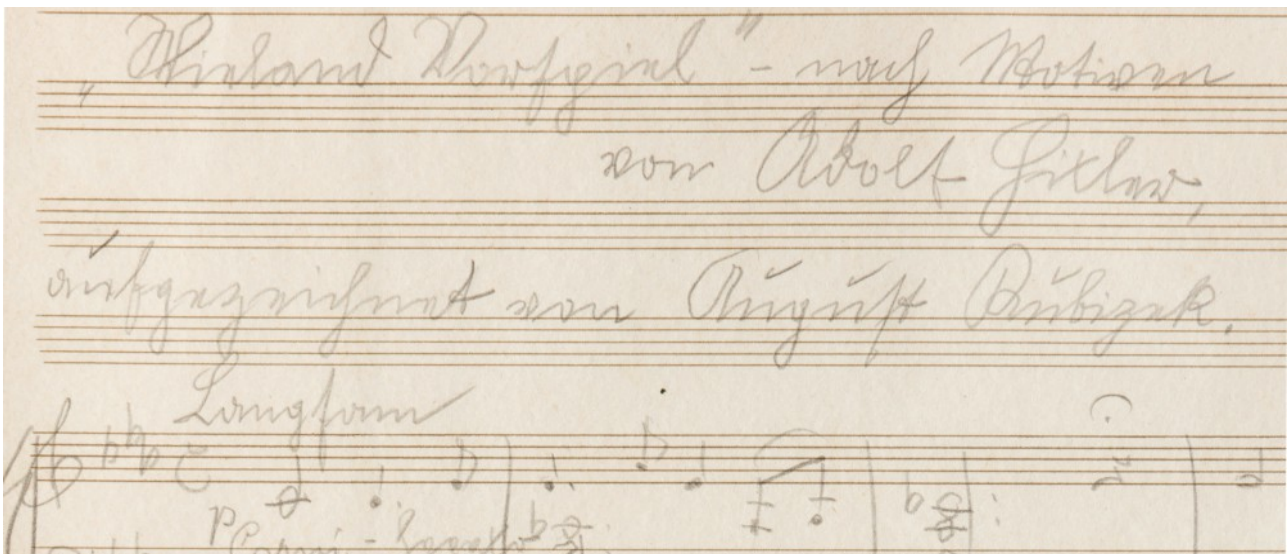 „Wieland Vorspiel“ - nach Motiven
von Adolf Hitler,
aufgezeichnet von August Kubizek.
Langsam
p